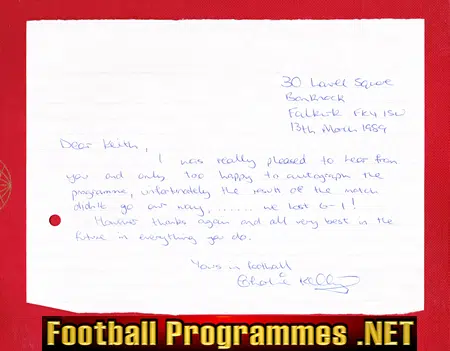 30 Laurel Square
Bankhock
Falkirk FK4 1SW
13th March 1989
Dear Keith,
I was really pleased to hear from
you and only too happy to autograph the
programme, unfortunately the result of the match
didn't go our way, ....... we lost 6-1!
However thanks again and all very best in the
future in everything you do.
Yours in football
Charlie Kelly
Football Programmes .NET